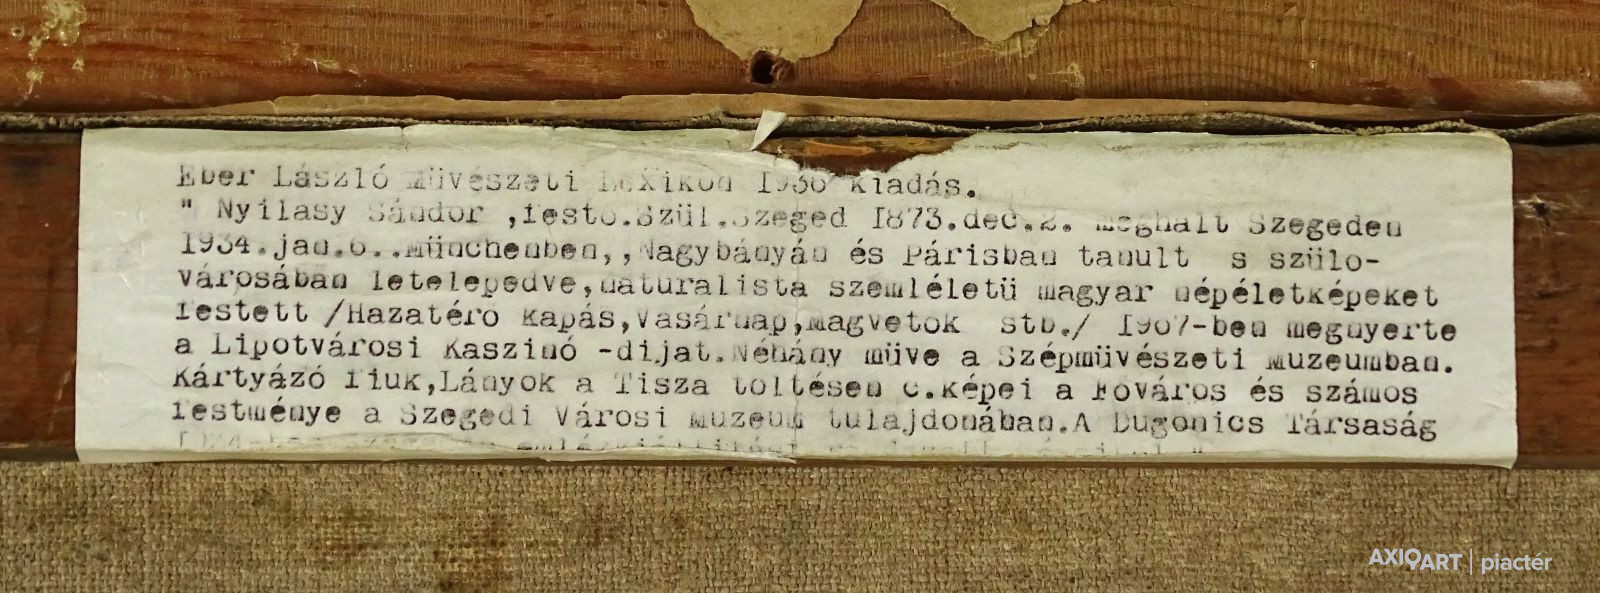 Eber László Müvészeti Lexikon 1936 kiadás.
" Nyilasy Sándor ,festo.Szül.Szeged I873.dec.2. meghalt Szegeden
1934.jan.6..Münchenben,,Nagybányán és Párisban tanult s szülo-
városában letelepedve,naturalista szemléletü magyar népéletképeket
festett /Hazatéro Kapás,Vasárnap,Magvetok stb./ I907-ben megnyerte
a Lipotvárosi Kaszinó -dijat.Néhány müve a Szépmüvészeti Muzeumban.
Kártyázó fiuk,Lányok a Tisza toltésen c.képei a Fováros és számos
festménye a Szegedi Városi Muzeum tulajdonában.A Dugonics Társaság
AXIOART | piactér